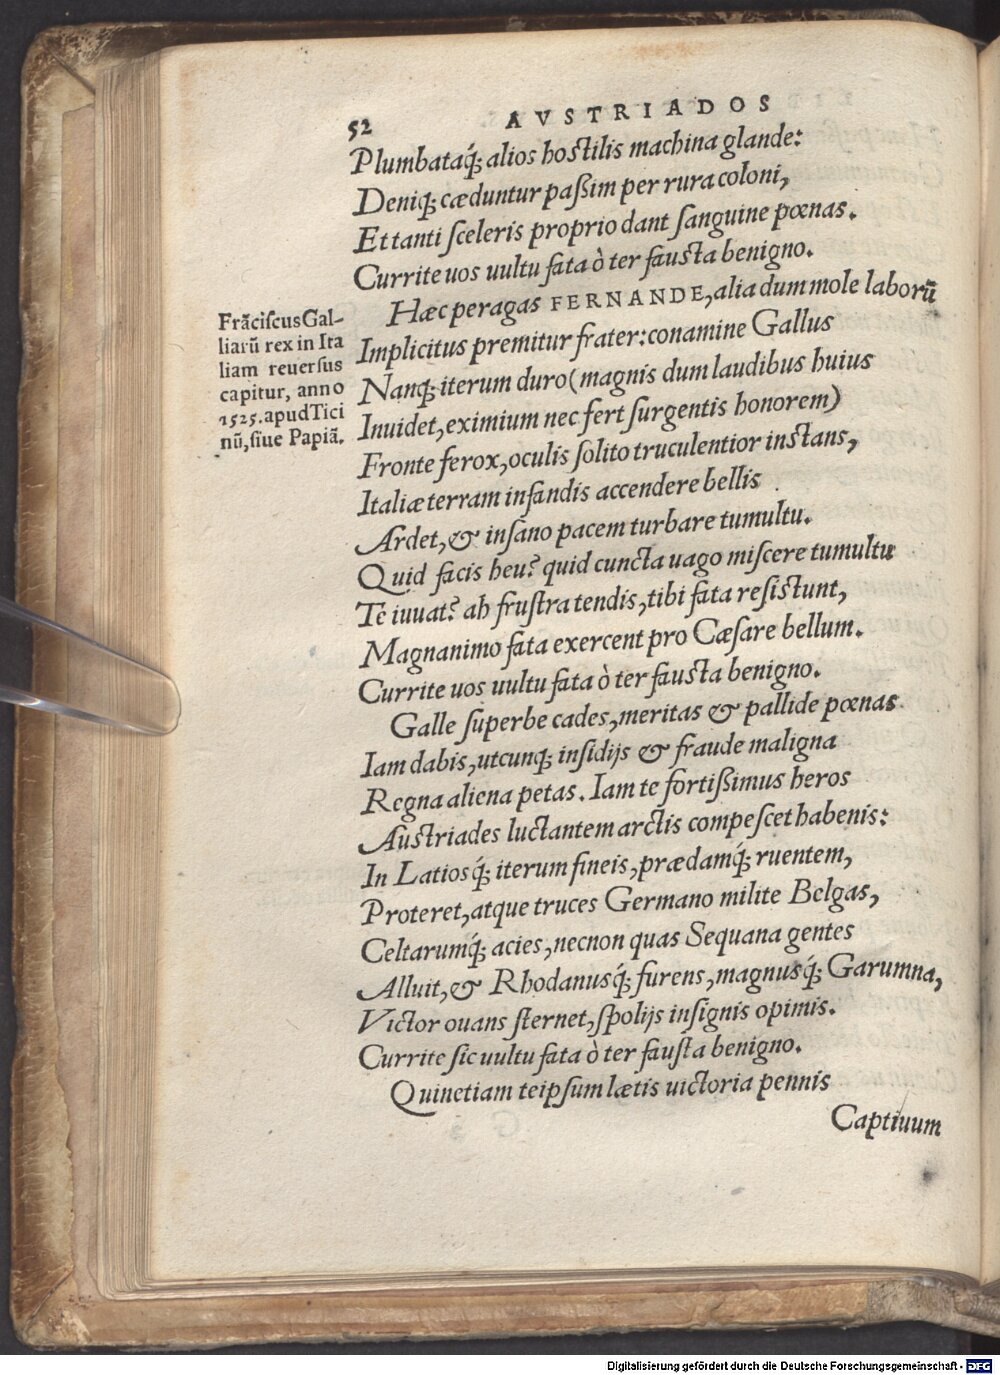 52 AVSTRIADOS
Plumbataq́; alios hoſtilis machina glande:
Deniq; cæduntur paßim per rura coloni,
Et tanti ſceleris proprio dant ſanguine pœnas.
Currite uos uultu fata ò ter fauſta benigno.
Hæc peragas FERNANDE, alia dum mole laborũ
Implicitus premitur frater: conamine Gallus
Nanq; iterum duro (magnis dum laudibus huius
Inuidet, eximium nec fert ſurgentis honorem)
Fronte ferox, oculis ſolito truculentior inſtans,
Italiæ terram infandis accendere bellis
Ardet, & inſano pacem turbare tumultu.
Quid facis heu? quid cuncta uago miſcere tumultu
Te iuuat? ah fruſtra tendis, tibi fata reſiſtunt,
Magnanimo fata exercent pro Cæſare bellum.
Currite uos uultu fata ò ter fauſta benigno.
Galle ſuperbe cades, meritas & pallide pœnas
Iam dabis, utcunq; inſidijs & fraude maligna
Regna aliena petas. Iam te fortißimus heros
Auſtriades luctantem arctis compeſcet habenis:
In Latiosq́; iterum fineis, prædamq́; ruentem,
Proteret, atque truces Germano milite Belgas,
Celtarumq́; acies, necnon quas Sequana gentes
Alluit, & Rhodanusq́; furens, magnusq́; Garumna,
Victor ouans ſternet, ſpolijs inſignis opimis.
Currite ſic uultu fata ò ter fauſta benigno.
Quinetiam teipſum lætis uictoria pennis
Captiuum
Frãciſcus Gal-
liarũ rex in Ita
liam reuerſus
capitur, anno
1525. apud Tici
nũ, ſiue Papiã.
Digitalisierung gefördert durch die Deutsche Forschungsgemeinschaft - DFG